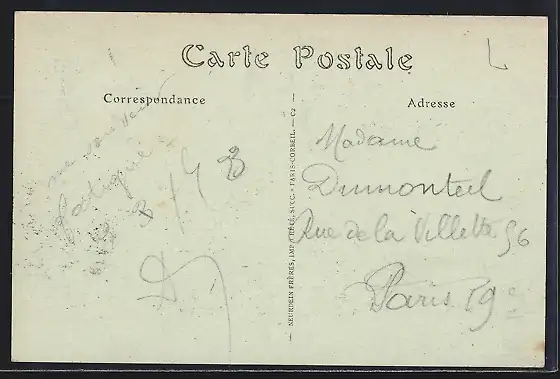 Carte Postale
Correspondance
Adresse
fatigué
Madame
Dumonteil
Rue de la Villette 56
Paris 19e
NEURDEIN FRÈRES, IMP. CRÉTÉ, SUCC. - PARIS-CORBEIL. - C2